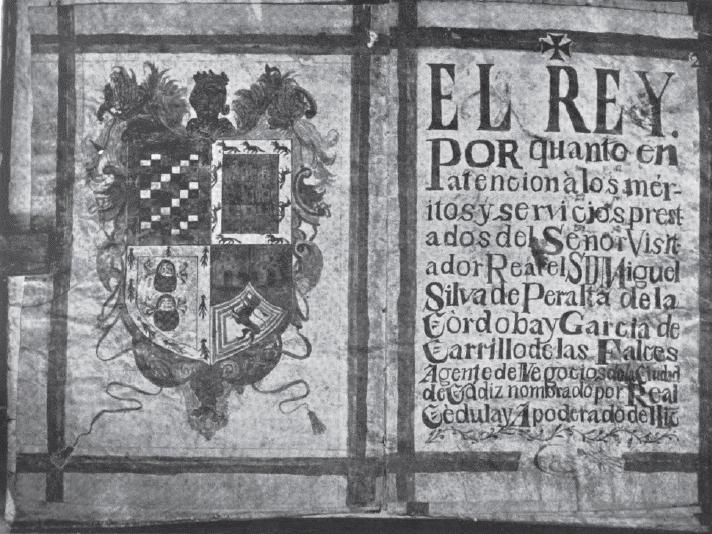 EL REY.
PORquanto en
atencion à los mér-
itos y servicios prest
ados del Señor Visit
ador Real el S D Miguel
Silva de Peralta de la
Còrdoba y Garcia de
Carrillo de las Falces
Agente de Negocios de la Ciudad
de Cádiz nombrado por Real
Cèdula y Apoderado del